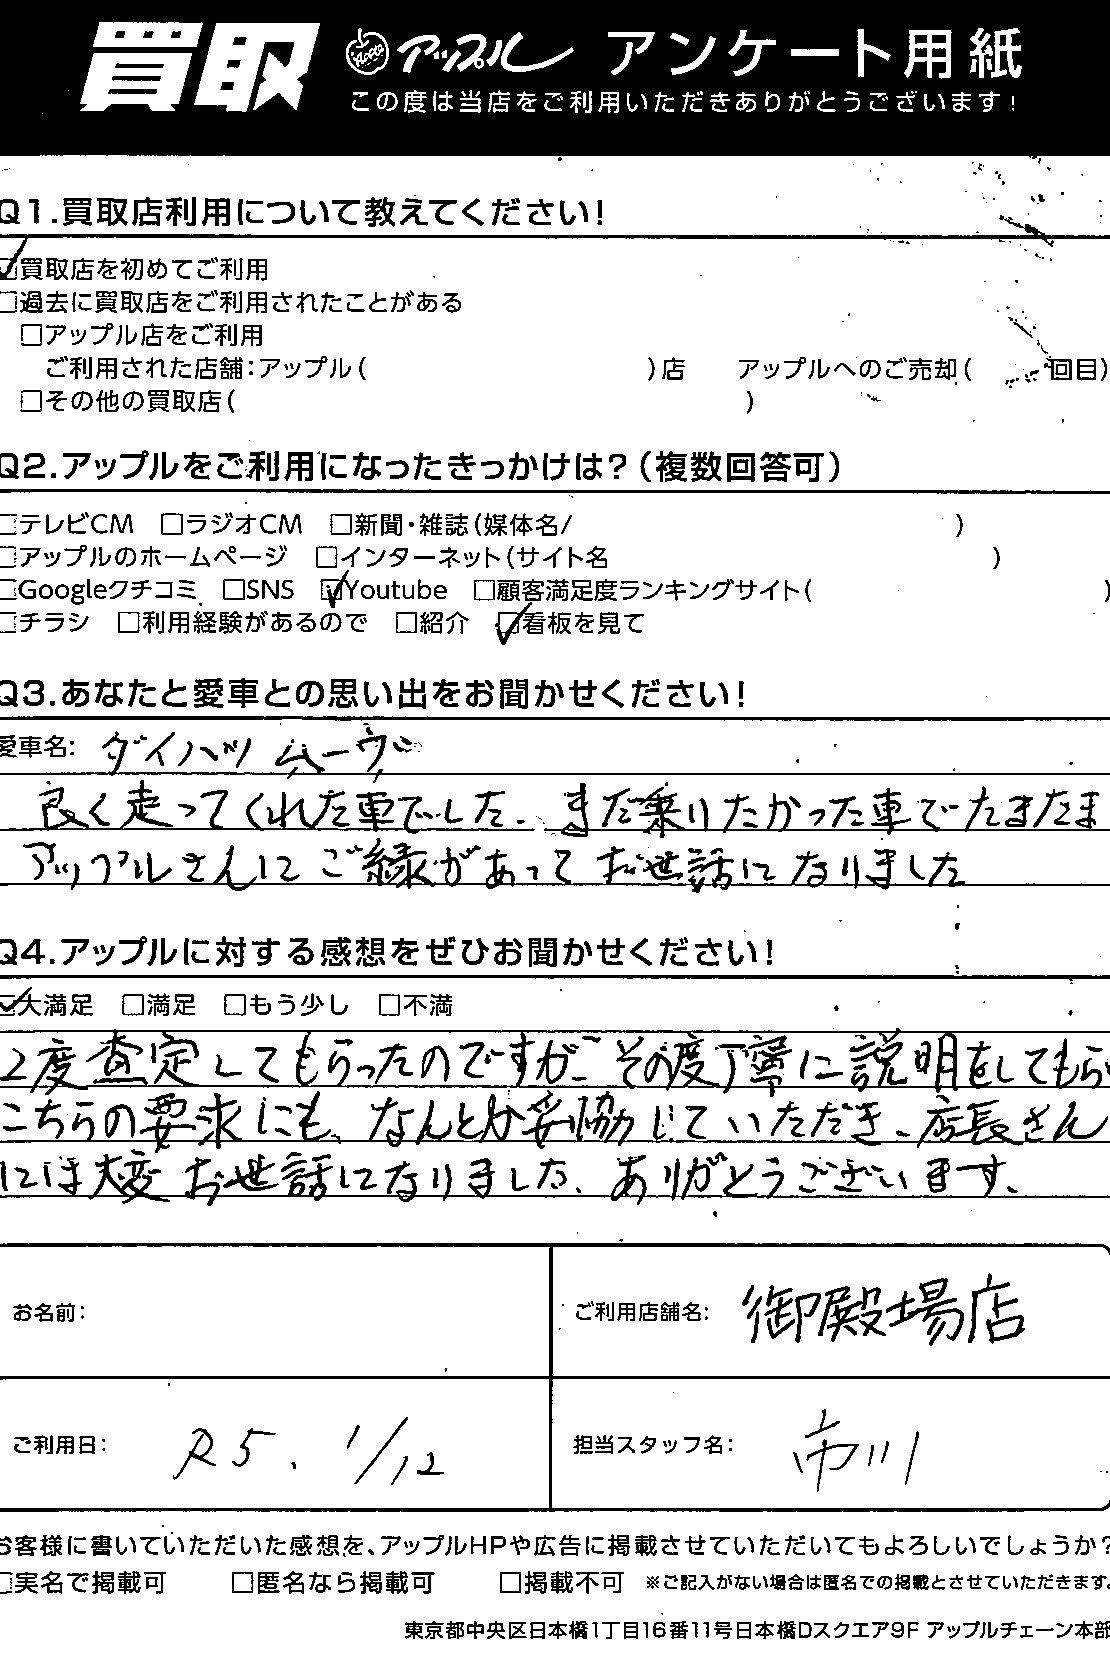 買取 アップル アンケート用紙
この度は当店をご利用いただきありがとうございます!
Q1.買取店利用について教えてください!
☑買取店を初めてご利用
□過去に買取店をご利用されたことがある
□アップル店をご利用
ご利用された店舗:アップル( )店 アップルへのご売却( 回目)
□その他の買取店( )
Q2.アップルをご利用になったきっかけは?(複数回答可)
□テレビCM □ラジオCM □新聞・雑誌(媒体名/ )
□アップルのホームページ □インターネット(サイト名 )
□Googleクチコミ □SNS ☑Youtube □顧客満足度ランキングサイト( )
□チラシ □利用経験があるので □紹介 ☑看板を見て
Q3.あなたと愛車との思い出をお聞かせください!
愛車名: ダイハツ ムーヴ
良く走ってくれた車でした. まだ乗りたかった車でたまたま
アップルさんにご縁があって お世話になりました
Q4.アップルに対する感想をぜひお聞かせください!
☑大満足 □満足 □もう少し □不満
2度査定してもらったのですが、その度丁寧に説明をしてもらい
こちらの要求にも、なんとか妥協じていただき、店長さん
には大変お世話になりました. ありがとうございます.
お名前:
ご利用店舗名: 御殿場店
ご利用日: R5. 1/12
担当スタッフ名: 市川
お客様に書いていただいた感想を、アップルHPや広告に掲載させていただいてもよろしいでしょうか?
□実名で掲載可 □匿名なら掲載可 □掲載不可 ※ご記入がない場合は匿名での掲載とさせていただきます。
東京都中央区日本橋1丁目16番11号日本橋Dスクエア9F アップルチェーン本部